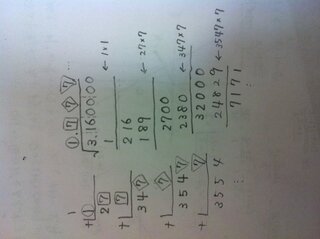 1.777...
1 √3.160000
+1 1 ←1×1
27 216
+7 189 ←27×7
347 2700
+7 2380 ←347×7
3547 32000
+7 24829 ←3547×7
3554 7171
⋮ ⋮